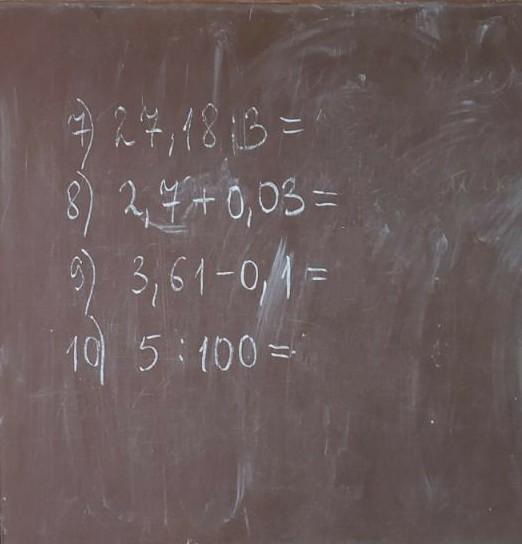 7) 27,18:3=
8) 2,7+0,03=
9) 3,61-0,1=
10) 5:100=